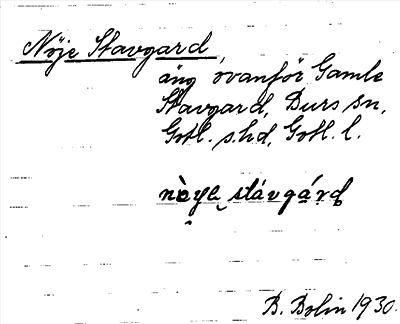 Nöje Stavgard,
äng ovanför Gamle
Stavgard, Burs sn,
Gotl. s. hd, Gotl. l.
nòye stávgárd
B. Bolin 1930.